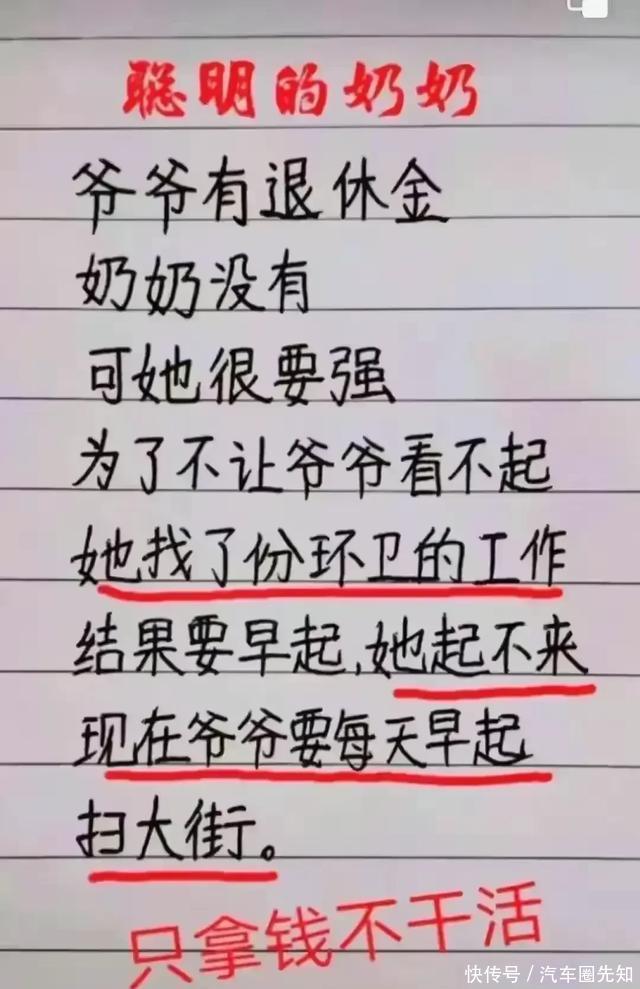 聪明的奶奶
爷爷有退休金
奶奶没有
可她很要强
为了不让爷爷看不起
她找了份环卫的工作
结果要早起,她起不来
现在爷爷要每天早起
扫大街。
只拿钱不干活
快传号/汽车圈先知